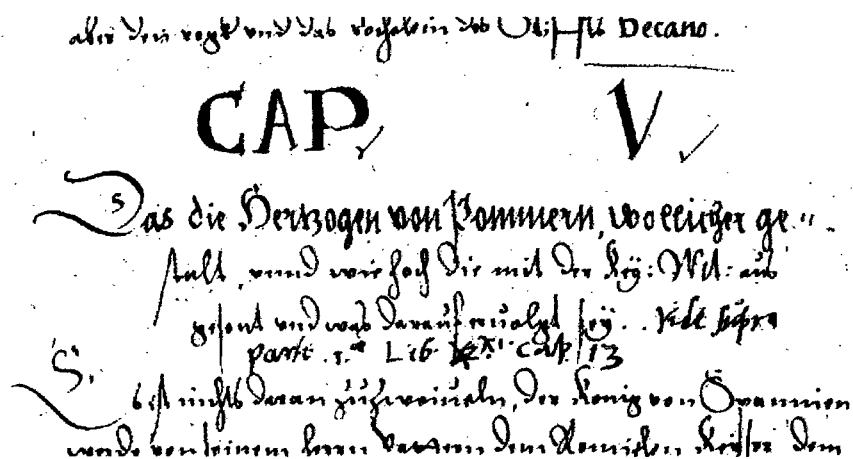 aber den vogt vnd das rochelein des Stiffts Decano.
CAP V
Das die Hertzogen von Pommern, wollicher ge=
stalt, vnnd wie hoch Sie mit der Key: Mt: aus
gesont vnd was darauf ervolgt sey. . vide supra
parte 1. Lib XI. cap 13
Es ist nichts daran zuzweiueln, der Konig von Spannien
werde von seinem herrn Vattern dem Romischen Keyser dem